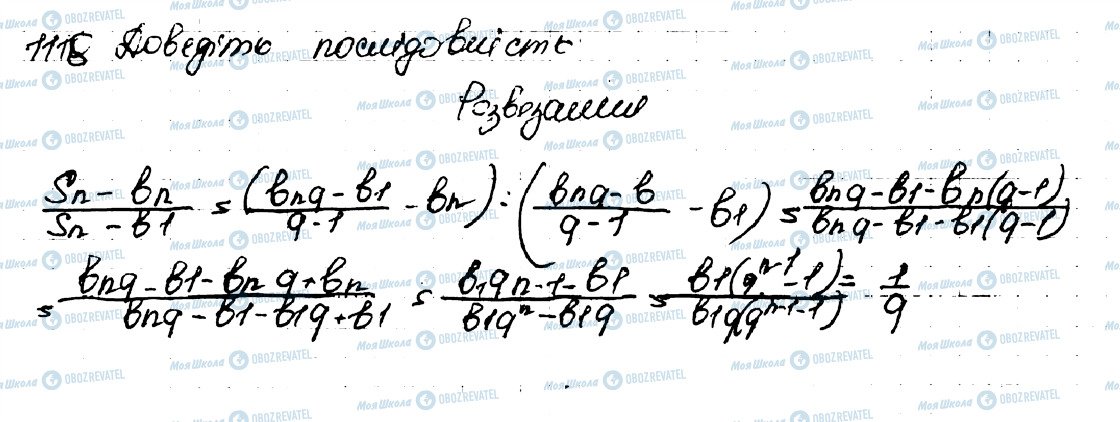 1116 Доведіть послідовність
Розвязання
(Sn - bn)/(Sn - b1) = ((bnq - b1)/(q - 1) - bn) : ((bnq - b)/(q - 1) - b1) = (bnq - b1 - bn(q-1))/(bnq - b1 - b1(q-1))
= (bnq - b1 - bnq + bn)/(bnq - b1 - b1q + b1) = (b1q^n-1 - b1)/(b1q^n - b1q) = (b1(q^n-1 - 1))/(b1q(q^n-1 - 1)) = 1/q